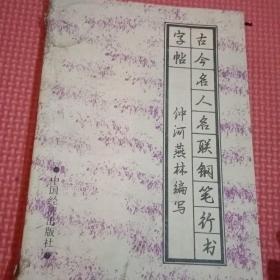 古今名人名联钢笔行书
字帖
仲河燕林编写
中国经济出版社